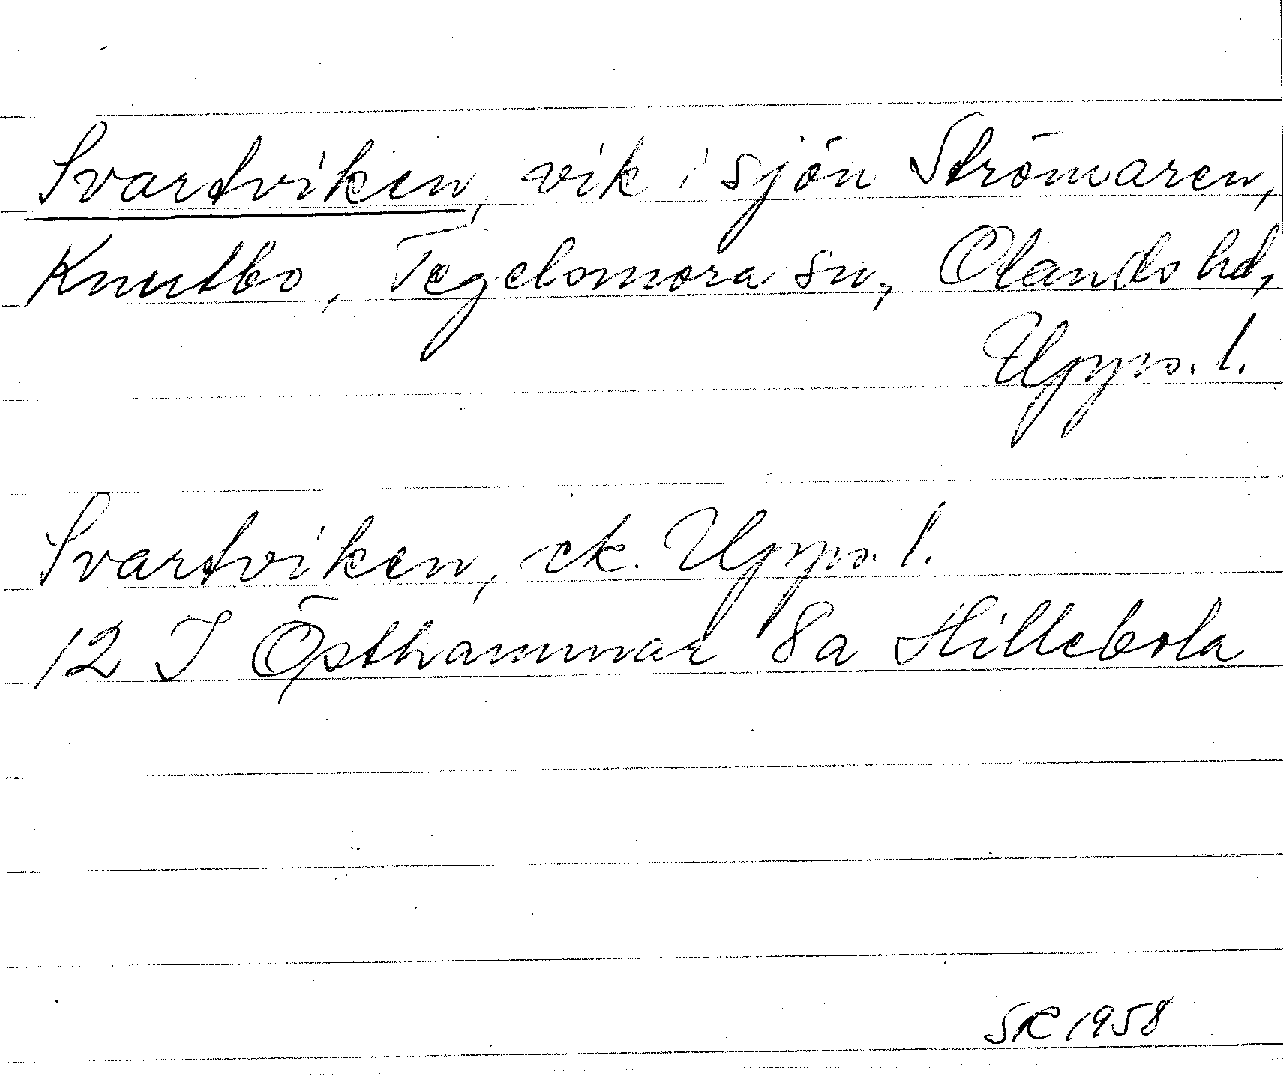 Svartviken, vik i sjön Strömaren,
Knutbo, Tegelsmora sn, Olands hd,
Upps. l.
Svartviken, ek. Upps. l.
12 I Östhammar 8a Hillebola
SR 1958